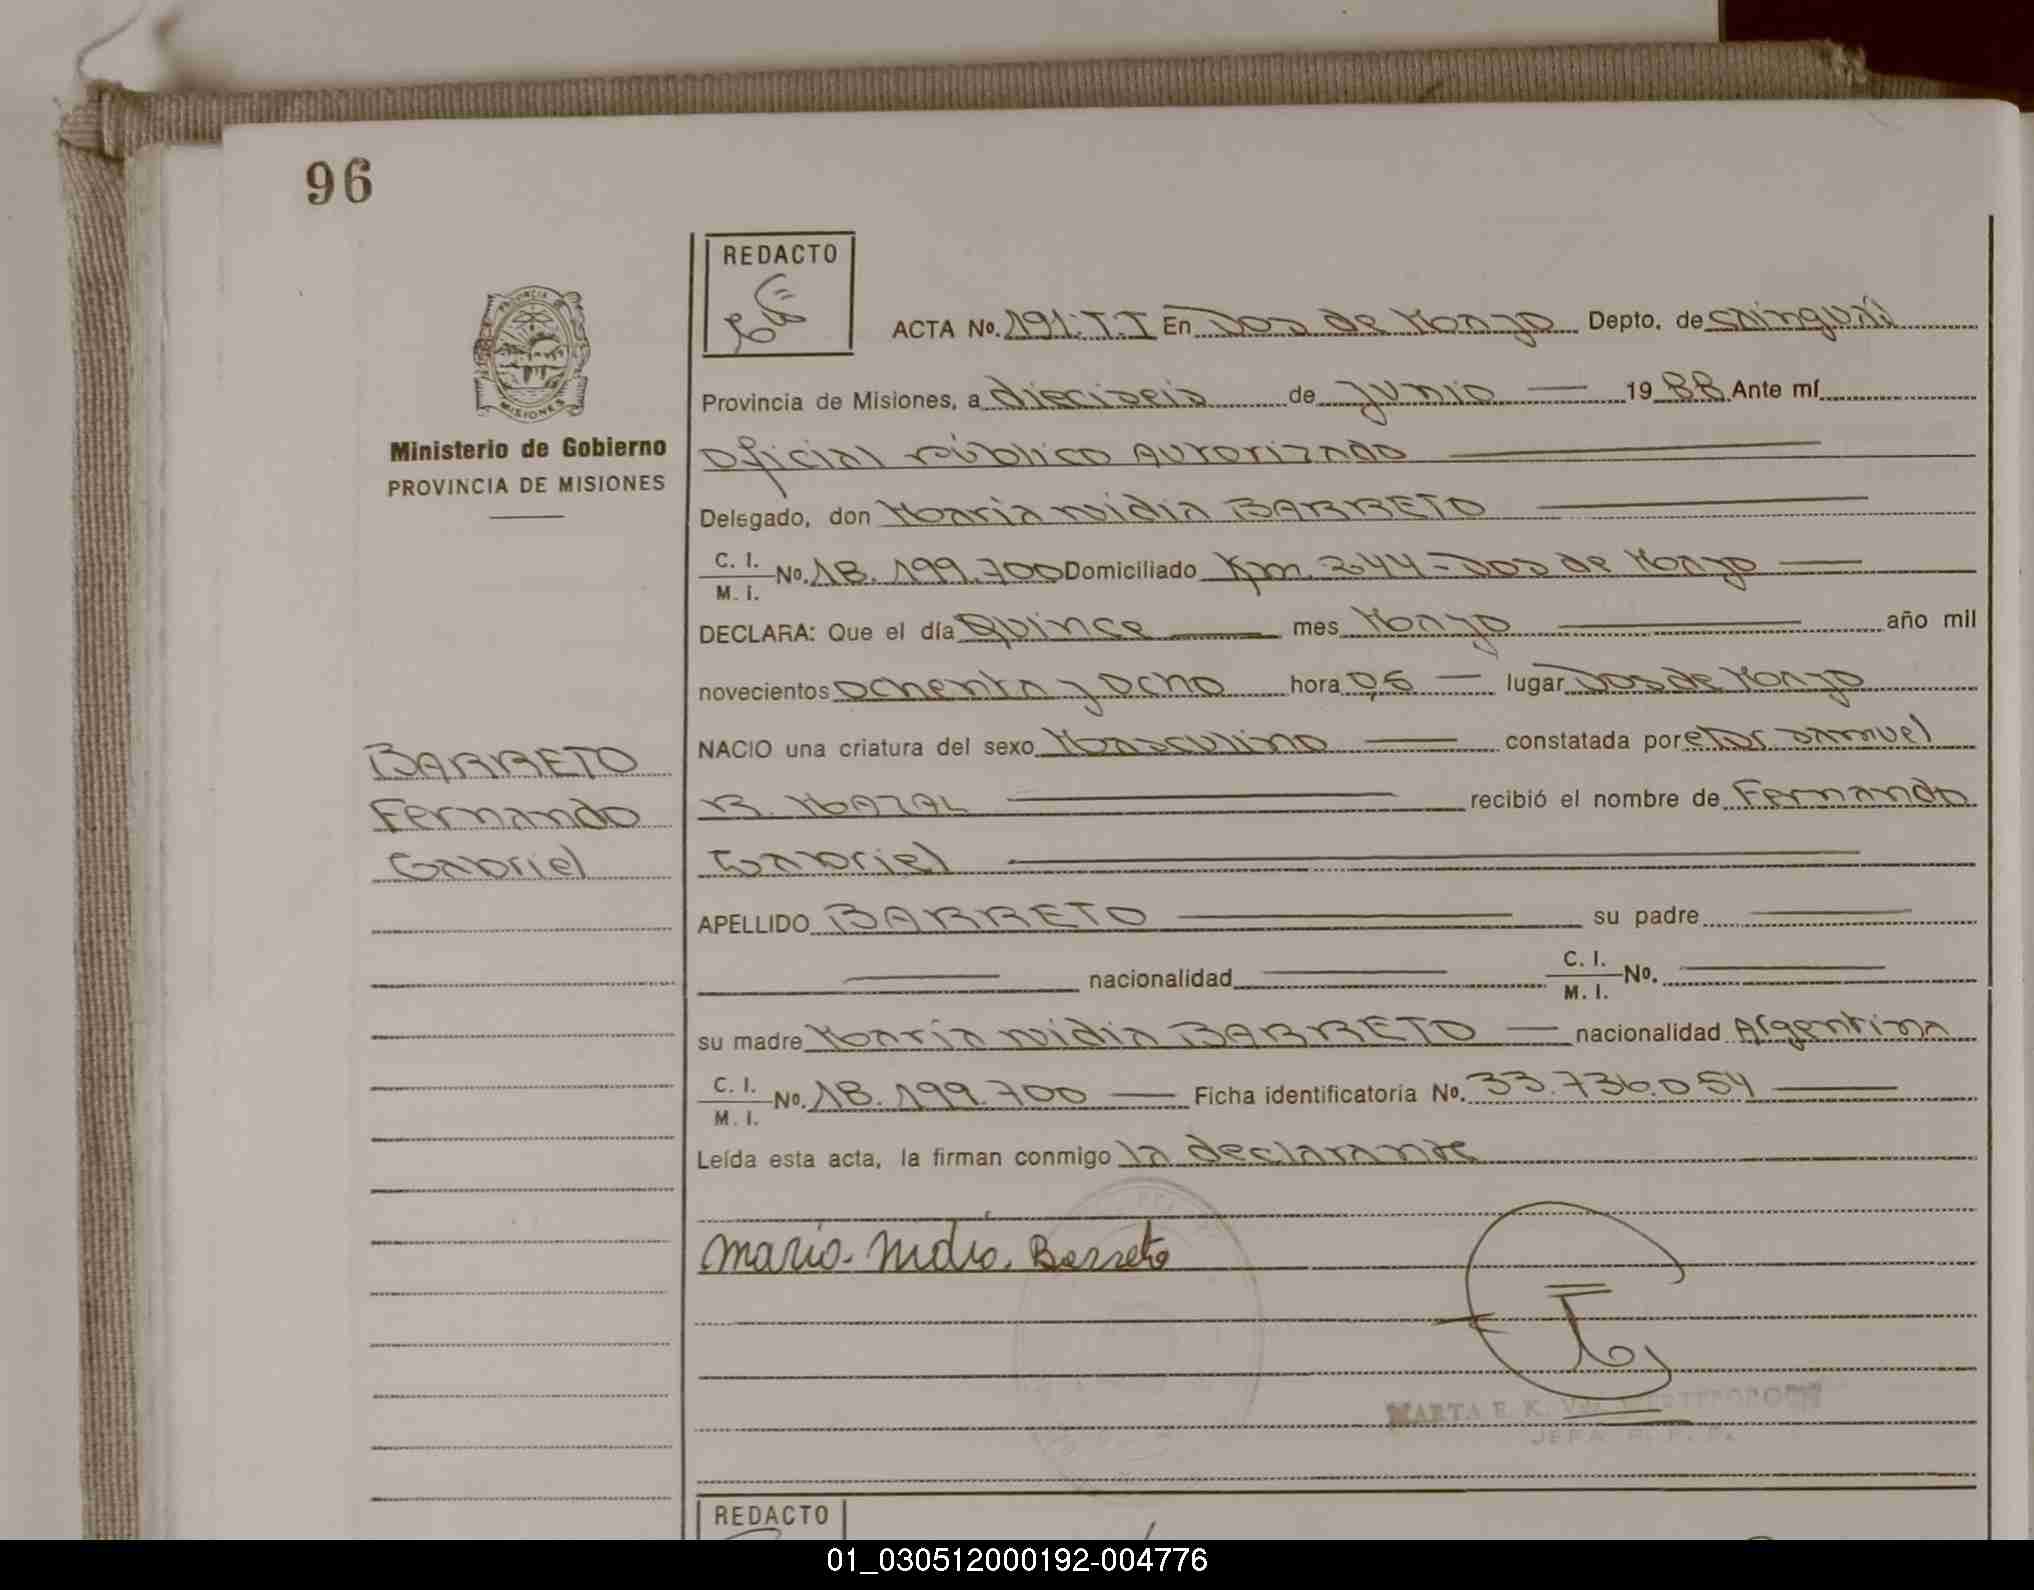 96
REDACTO
PROVINCIA DE
MISIONES
ACTA No. 191.T.I En Dos de Mayo Depto. de
Ministerio de Gobierno
PROVINCIA DE MISIONES
Provincia de Misiones, a dieciseis de Junio 1988 Ante mí
Oficial público Autorizado
Delegado, don Maria nidia BARRETO
C. I.
No. 18.199.700 Domiciliado Km. 244 - Dos de Mayo
M. I.
DECLARA: Que el día Quince mes Mayo año mil
novecientos ochenta y ocho hora 0,5 lugar Dos de Mayo
NACIO una criatura del sexo Masculino constatada por samuel
R. MAZAL recibió el nombre de Fernando
Gabriel
BARRETO
Fernando
Gabriel
APELLIDO BARRETO su padre
nacionalidad C. I. No.
M. I.
su madre Maria nidia BARRETO nacionalidad Argentina
C. I.
No. 18.199.700 Ficha identificatoria No. 33.736.054
M. I.
Leída esta acta, la firman conmigo la declarante
Maria Nidia Barreto
MARTA E. K.
JEFA R. P. P.
REDACTO
01_030512000192-004776